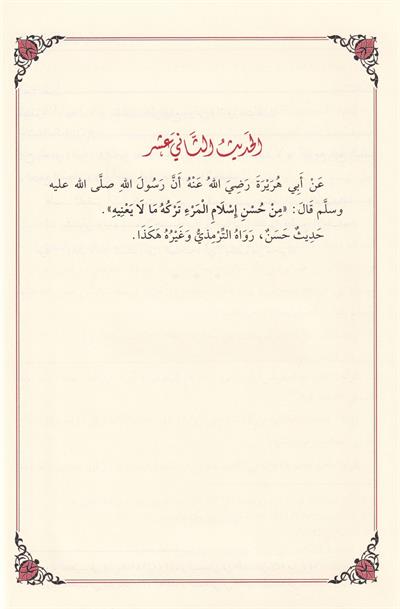 الحَدِيثُ الثَّانِيَ عَشَر
عَنْ أَبِي هُرَيْرَةَ رَضِيَ اللهُ عَنْهُ أَنَّ رَسُولَ اللهِ صلَّى الله عليه
وسلَّم قَالَ: «مِنْ حُسْنِ إِسْلَامِ المَرْءِ تَرْكُهُ مَا لَا يَعْنِيهِ».
حَدِيثٌ حَسَنٌ، رَوَاهُ التِّرْمِذِيُّ وَغَيْرُهُ هَكَذَا.